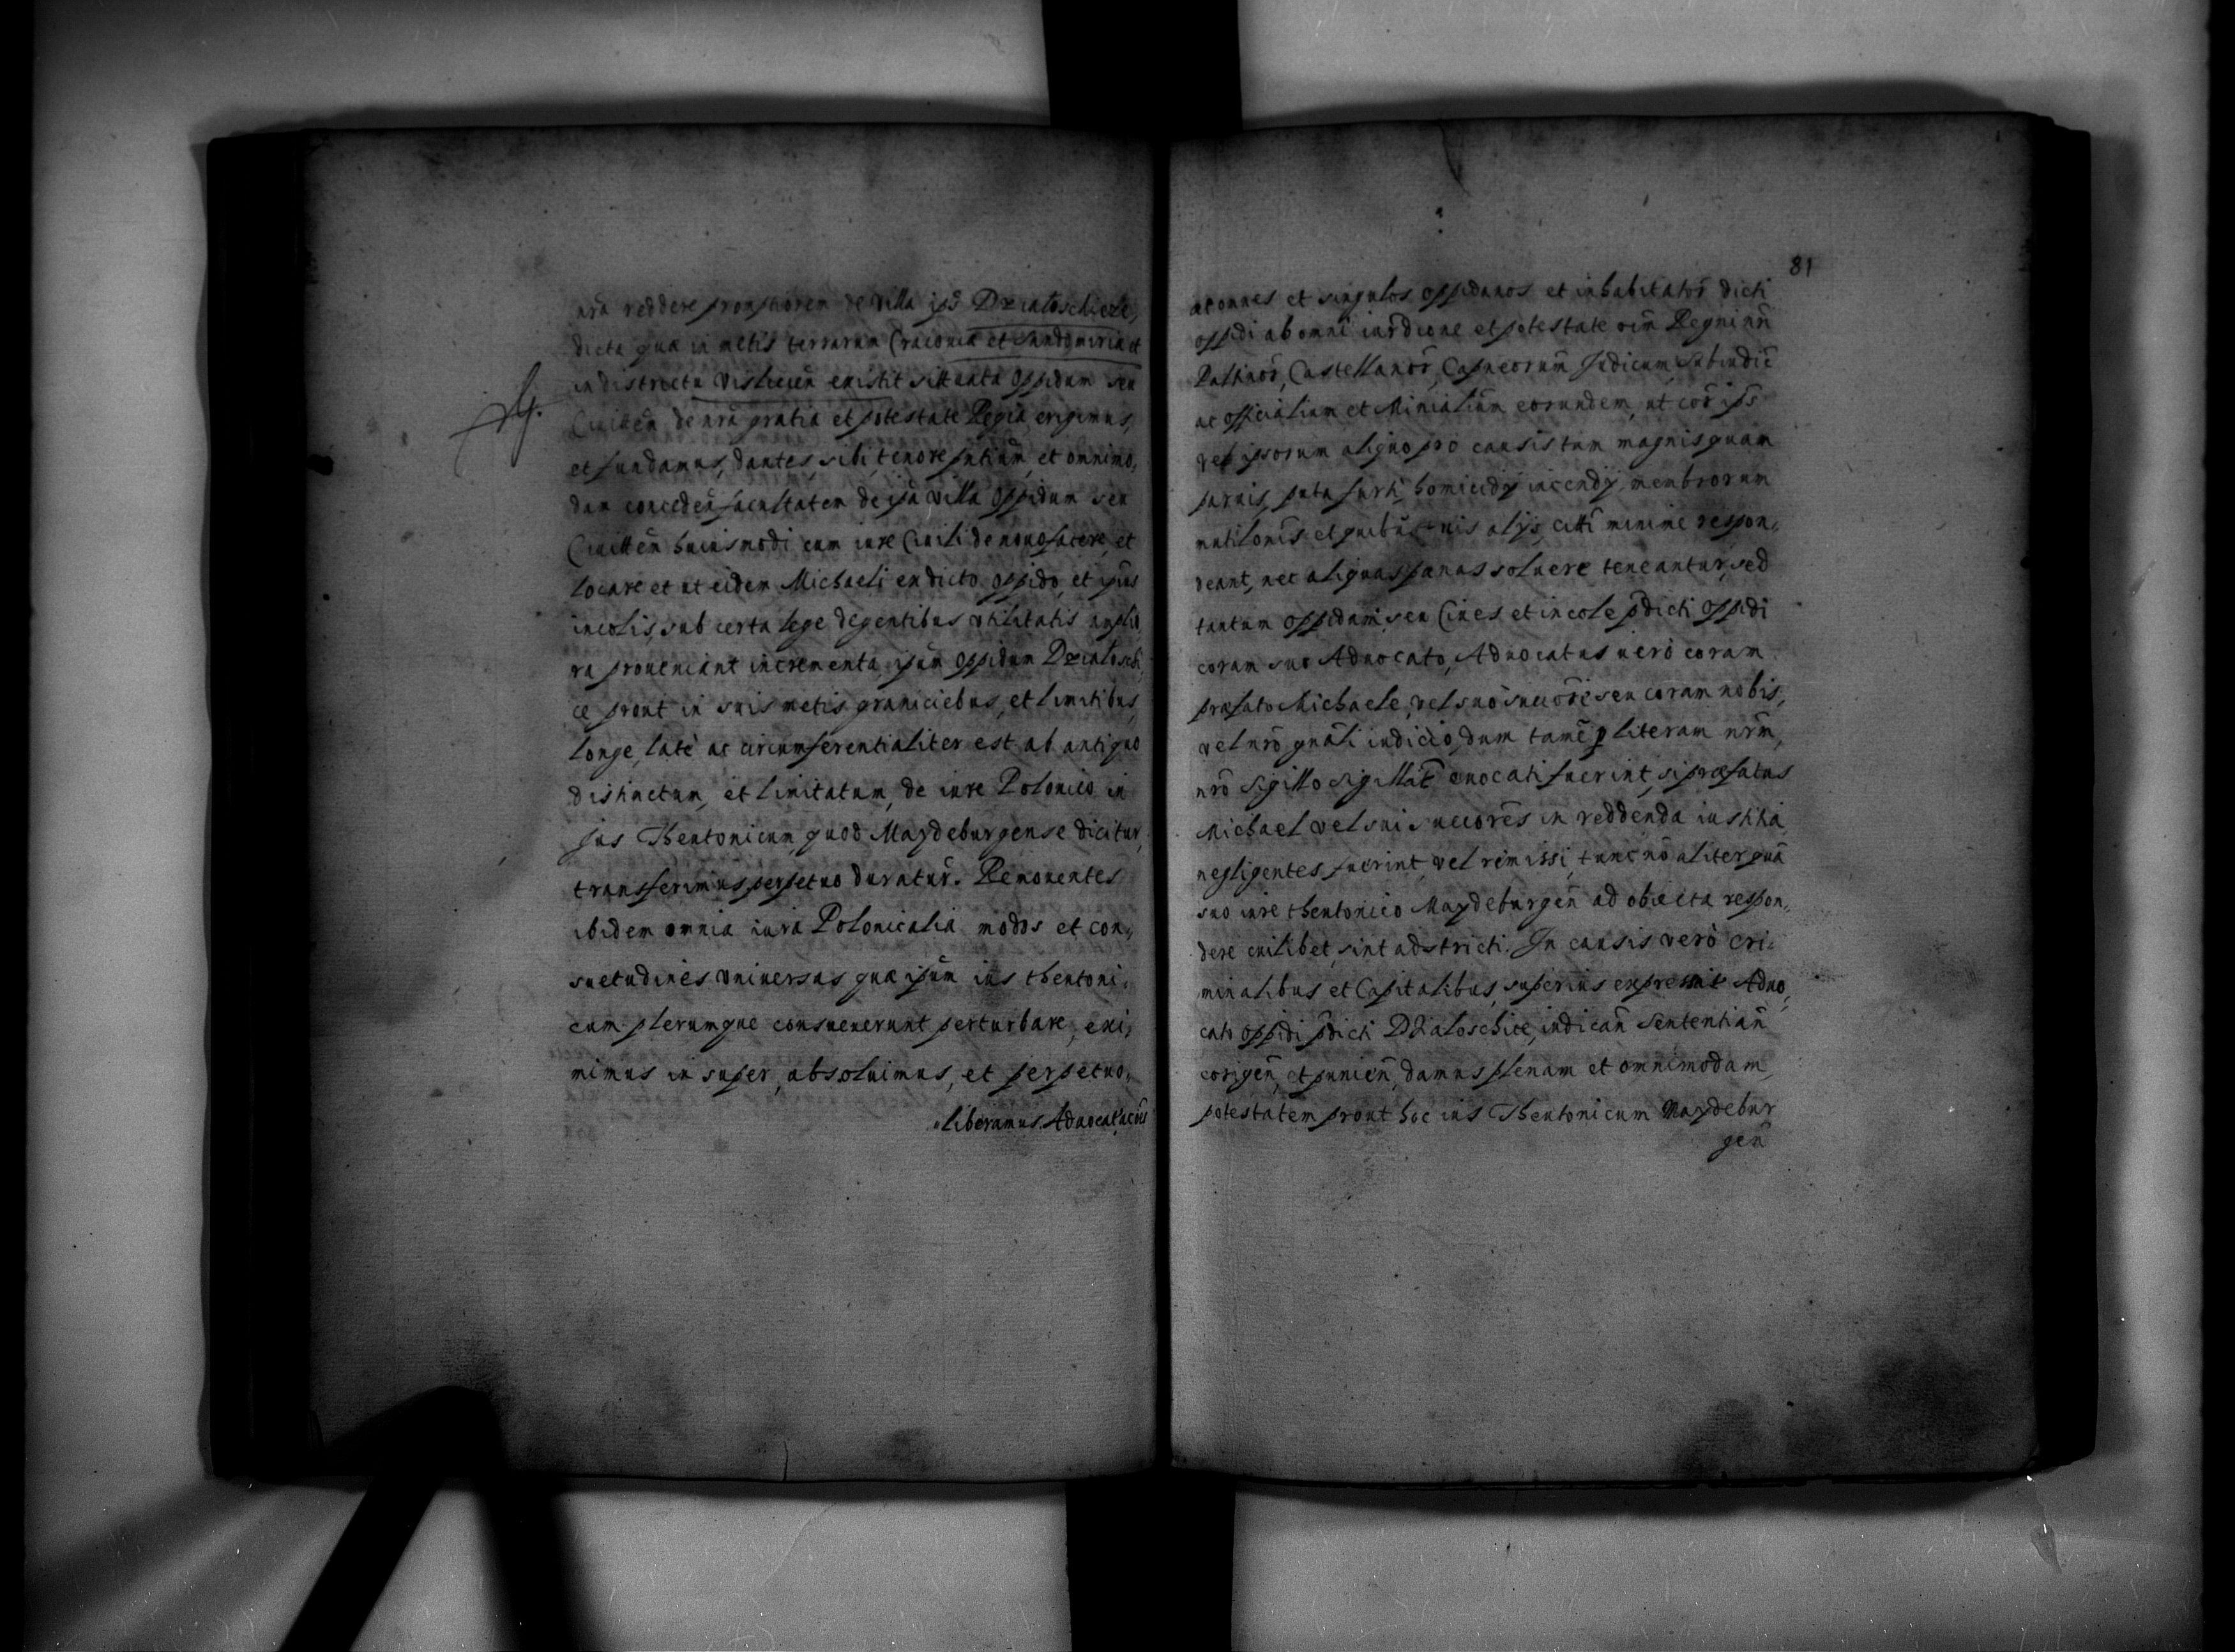 nrã reddere promptiorem de villa ipsã Dzialoschicze,
dicta quæ in metis terrarum Cracouiæ et Sandomiriæ et
in districtu Vislicień existit sittuata Oppidum seu
Ciuittẽn de nrã gratia et potestate Regia erigimus,
et fundamus, dantes, sibi, tenore pñtium, et omnimo,
dam conceden̄ facultatem de ipã villa Oppidum seu
Ciuittẽn huiusmodi cum iure Ciuili de nouo facere, et
locare et ut eidem Michaeli ex dicto oppido, et ipius
incolis, sub certa lege degentibus vtilitatis amplio,
ra proueniant incrementa, ipũm oppidum Dzialoschi,
ce prout in suis metis graniciebus, et limitibus,
longe, latè ac circumferentialiter est ab antiquo
distinctum, et limitatum, de iure Polonico in
Jus Theutonicum, quod Maydeburgense dicitur,
transferimus perpetuo duratur̃. Remouentes
ibidem omnia iura Polonicalia modos et con,
suetudines vniuersas quæ ipũm ius theutoni,
cum plerumque consueuerunt perturbare, exi,
mimus in super, absoluimus, et perpetuo,
liberamus. Aduocat, ac oẽs
81
ac omnes et singulos oppidanos et inhabitator̃ dicti
oppidi ab omni iurdicione et potestate oim̃ Regni nrĩ
Pallinor̃, Castellanor̃, Capneorum̃ Judicum, Subiudic̃
ac officialium et Minialium̃ eorundem, ut cor̃ ipĩs
vel ipsorum aliquo pro causis tam magnis quam
paruis, puta furti, homicidij incendij, membrorum
mutilonĩs et quibusuis alijs, citti minime respon,
deant, nec aliquas pœnas soluere teneantur, sed
tantum oppidani, seu Ciues et incole p̃dicti Oppidi
coram suo Aduocato, Aduocatus uerò coram
præfato Michaele, vel suo succõre seu coram nobis,
vel nrõ gnãli iudicio, dum tamẽ p literam nrãm,
nrõ Sigillo sigillat̃ euocati fuerint, si præfatus
Michael vel sui succorẽs in reddenda iustitia
negligentes fuerint, vel remissi, tunc nõ aliter quã
suo iure theutonico Maydeburgen̄ ad obiecta respon,
dere cuilibet, sint adstricti. In causis verò cri,
minalibus et Capitalibus, superius expressis Aduo,
cato oppidi p̃dicti Dzialoschice, iudican̄ Sententian̄
corigen̄, et punien̄, damus plenam et omnimodam
potestatem prout hoc ius Theutonicum Maydebur
gen̄